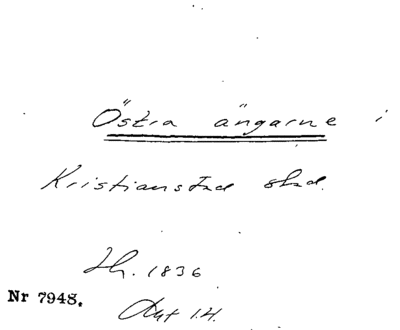 Östra ängarne i
Kristianstad stad.
Th. 1836
Nr 7948.
Akt 14.